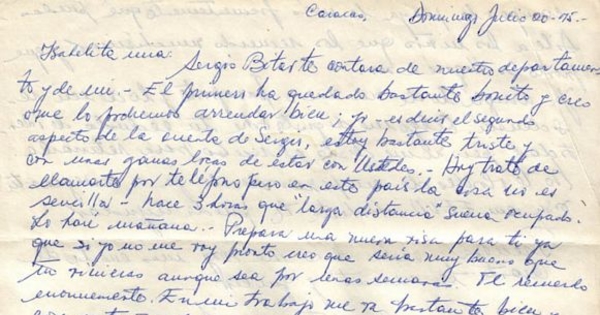 Caracas, Domingo Julio 20-75.-
Isabelita mia: Sergio Bitar te contara de nuestro departamen-
to y de mi.- El primero ha quedado bastante bonito y creo
que lo podremos arrendar bien; yo - es decir el segundo
aspecto de la cuenta de Sergio, estoy bastante triste y
con unas ganas locas de estar con Ustedes.- Hoy trate de
llamarte por teléfono pero en este pais la cosa no es
sencilla - hace 3 horas que "larga distancia" suena ocupado.
Lo haré mañana.- Prepara una nueva visa para ti ya
que si yo no me voy pronto creo que seria muy bueno que
tu vinieras aunque sea por unas semanas. Te recuerdo
enormemente. En mi trabajo me va bastante bien y